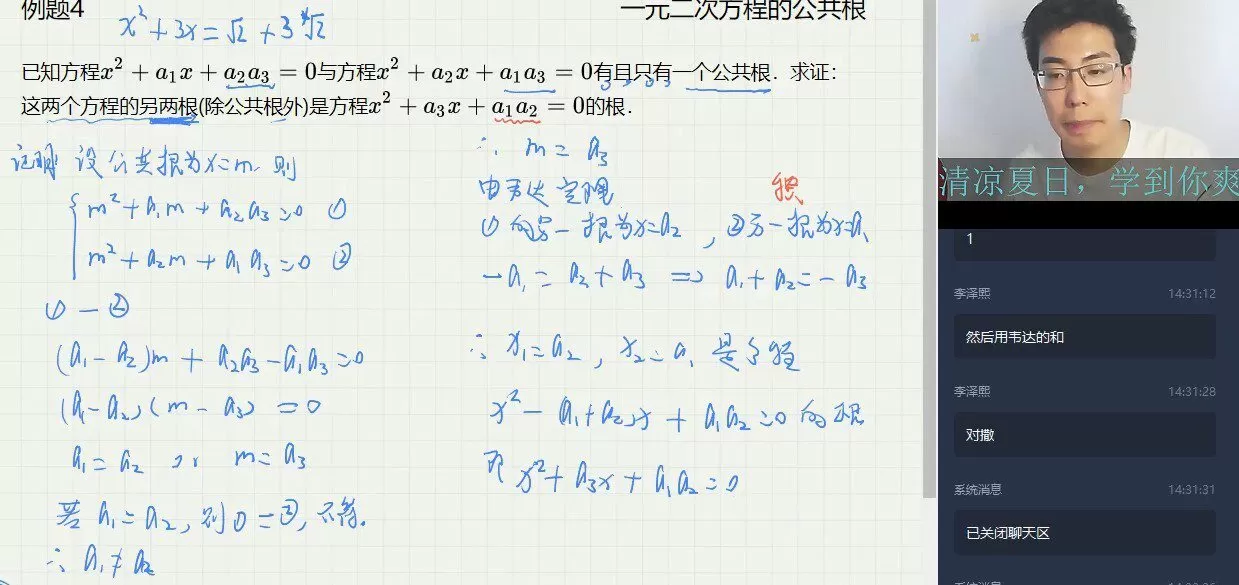 例题4
一元二次方程的公共根
x²+3x=√2+3∜2
已知方程x²+a₁x+a₂a₃=0与方程x²+a₂x+a₁a₃=0有且只有一个公共根．求证：
这两个方程的另两根(除公共根外)是方程x²+a₃x+a₁a₂=0的根．
证明 设公共根为x=m,则
m²+a₁m+a₂a₃=0 ①
m²+a₂m+a₁a₃=0 ②
①-②
(a₁-a₂)m+a₂a₃-a₁a₃=0
(a₁-a₂)(m-a₃)=0
a₁=a₂ or m=a₃
若a₁=a₂,则①=②,不符.
∴a₁≠a₂
∴m=a₃
由韦达定理
积
①的另一根为x=a₂,②另一根为x=a₁
-a₁=a₂+a₃⇒a₁+a₂=-a₃
∴x₁=a₂,x₂=a₁是方程
x²-(a₁+a₂)x+a₁a₂=0的根
即x²+a₃x+a₁a₂=0
清凉夏日，学到你爽
1
李泽熙 14:31:12
然后用韦达的和
李泽熙 14:31:28
对撒
系统消息 14:31:31
已关闭聊天区